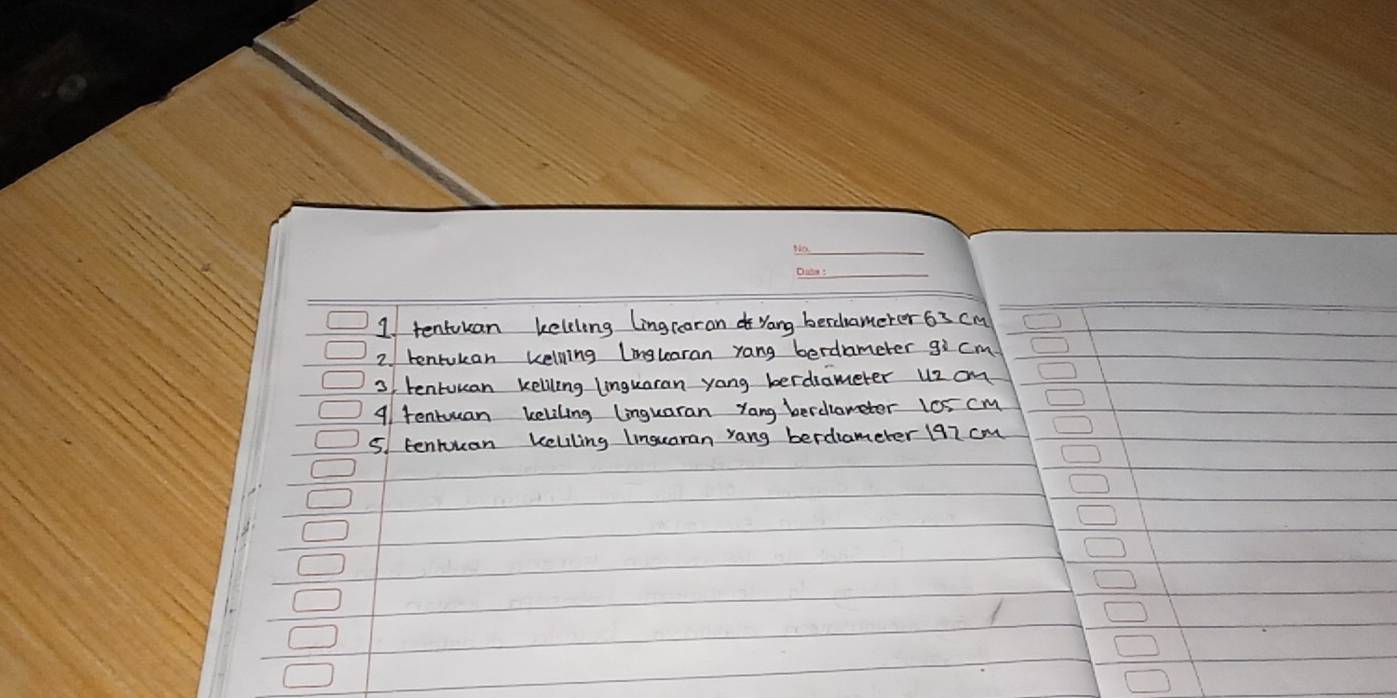 No.
Date :
1. tentukan keliling lingkaran yang berdiameter 63 cm
2. tentukan keliling lingkaran yang berdiameter cm
3. tentukan keliling lingkaran yang berdiameter 42 cm
4. tentukan keliling lingkaran yang berdiameter 105 cm
5. tentukan keliling lingkaran yang berdiameter 147 cm